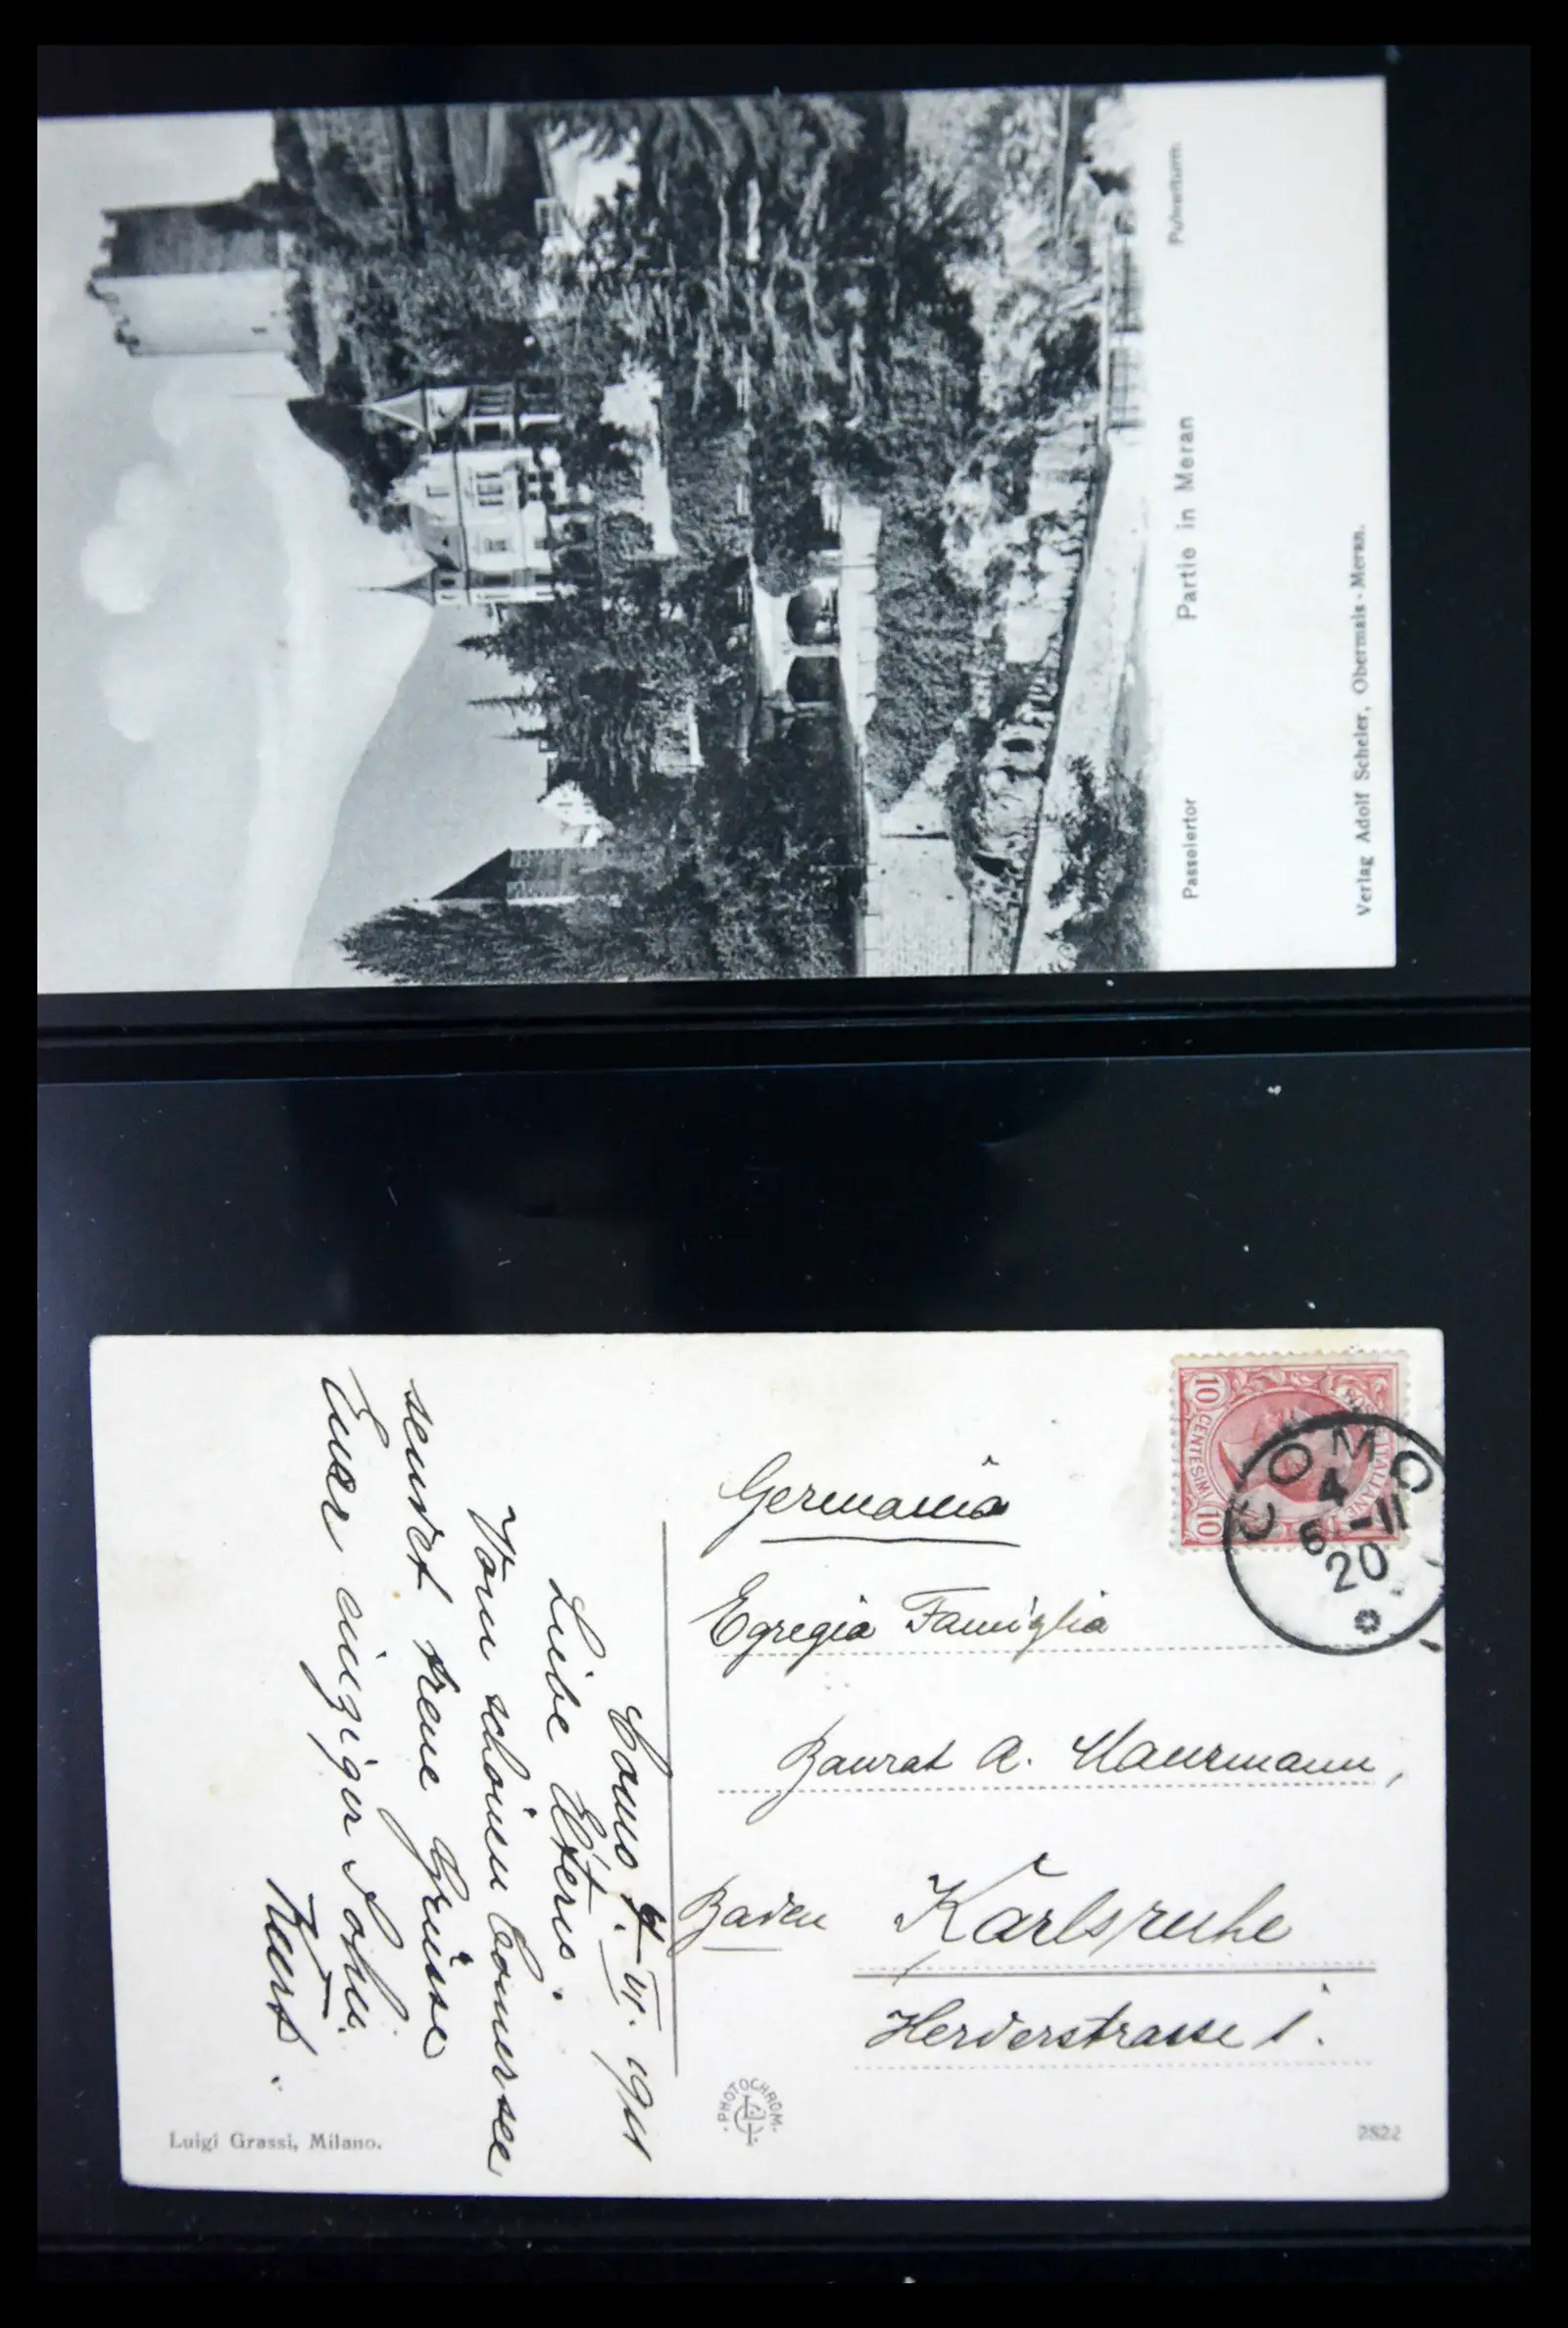 Passeiertor
Partie in Meran
Pulverturm
Verlag Adolf Scheler, Obermais-Meran.
10 CENTESIMI 10
COMO
4
6 -11
20
Germania
Egregia Famiglia
Baurat A.
Baden Karlsruhe
Herderstrasse 1.
Como 4. VI. 1911
Liebe Eltern.
Vom schönen Comersee
sendet treue Grüsse
Euer einziger Sohn.
Kurt.
PHOTOCHROM
Luigi Grassi, Milano.
2822